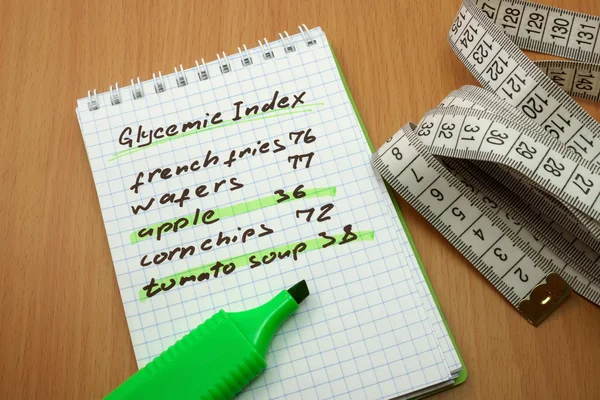 Glycemic Index
french fries 76
wafers 77
apple 36
corn chips 72
tomato soup 38
127 128 129 130 131
122 123 124 125
121 120 119
33 32 31 30 29 28 27
8 7 6 5 4 3 2